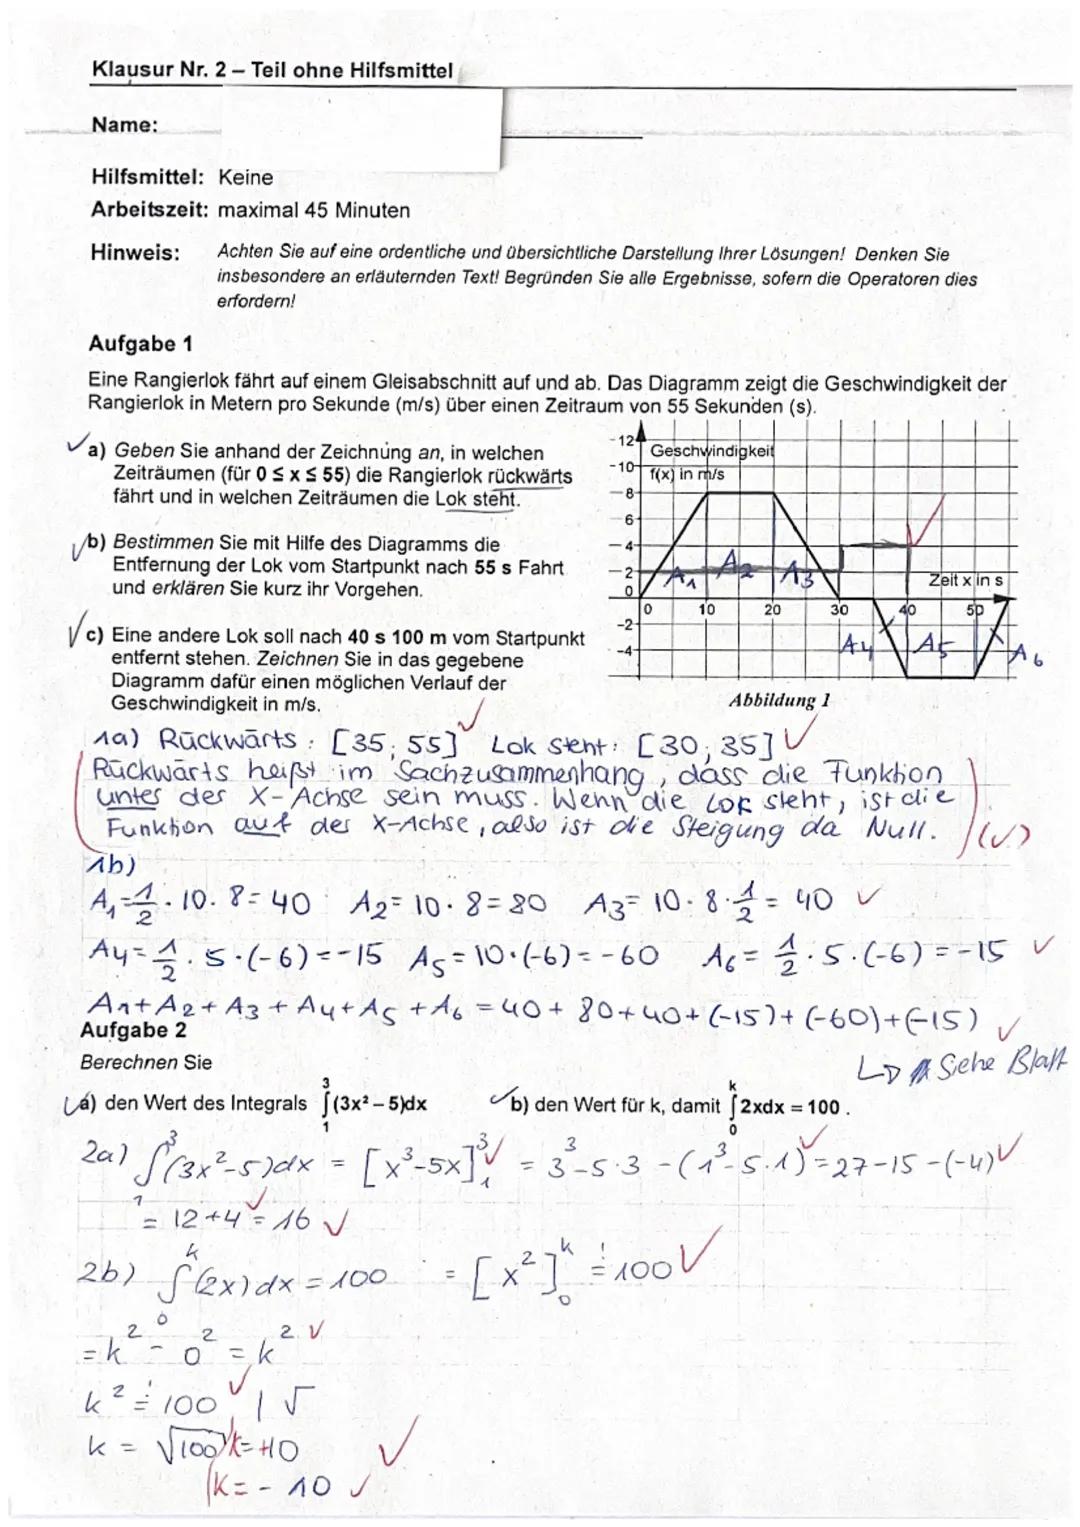 Klausur Nr. 2 – Teil ohne Hilfsmittel
Name:
Hilfsmittel: Keine
Arbeitszeit: maximal 45 Minuten
Hinweis: Achten Sie auf eine ordentliche und übersichtliche Darstellung Ihrer Lösungen! Denken Sie
insbesondere an erläuternden Text! Begründen Sie alle Ergebnisse, sofern die Operatoren dies
erfordern!
Aufgabe 1
Eine Rangierlok fährt auf einem Gleisabschnitt auf und ab. Das Diagramm zeigt die Geschwindigkeit der
Rangierlok in Metern pro Sekunde (m/s) über einen Zeitraum von 55 Sekunden (s).
a) Geben Sie anhand der Zeichnung an, in welchen
Zeiträumen (für 0 ≤ x ≤ 55) die Rangierlok rückwärts
fährt und in welchen Zeiträumen die Lok steht.
b) Bestimmen Sie mit Hilfe des Diagramms die
Entfernung der Lok vom Startpunkt nach 55 s Fahrt
und erklären Sie kurz ihr Vorgehen.
c) Eine andere Lok soll nach 40 s 100 m vom Startpunkt
entfernt stehen. Zeichnen Sie in das gegebene
Diagramm dafür einen möglichen Verlauf der
Geschwindigkeit in m/s.
12
Geschwindigkeit
10
f(x) in m/s
8
6
4
2
A1 A2 A3
Zeit x in s
0
0 10 20 30 40 50
-2
-4
A4 A5 A6
Abbildung 1
1a) Rückwärts: [35; 55] Lok steht: [30; 35]
Rückwärts heißt im Sachzusammenhang, dass die Funktion
unter der X-Achse sein muss. Wenn die Lok steht, ist die
Funktion auf der X-Achse, also ist die Steigung da Null.
(✓)
1b)
A₁=1/2 · 10 · 8 = 40 A2= 10 · 8 = 80 A3= 10 · 8 · 1/2 = 40 ✓
A4= 1/2 · 5 · (-6) = -15 A5 = 10·(-6) = -60 A6= 1/2 · 5 · (-6) = -15 ✓
A1+A2+A3+A4+A5+A6 = 40+ 80+40+(-15)+(-60)+(-15) ✓
Aufgabe 2
↳ Siehe Blatt
Berechnen Sie
a) den Wert des Integrals ∫₁³(3x² – 5)dx b) den Wert für k, damit ∫₀ᵏ 2xdx = 100 .
2a) ∫₁³(3x²-5)dx = [x³-5x]₁³ ✓ = 3³-5·3 -(1³-5·1) ✓ = 27-15-(-4) ✓
= 12+4 = 16 ✓
2b) ∫₀ᵏ(2x)dx = 100 = [x²]₀ᵏ = 100 ✓
= k² - 0² = k² ✓
k² = 100 ✓ | √
k = √100 k= +10 ✓
k= - 10 ✓